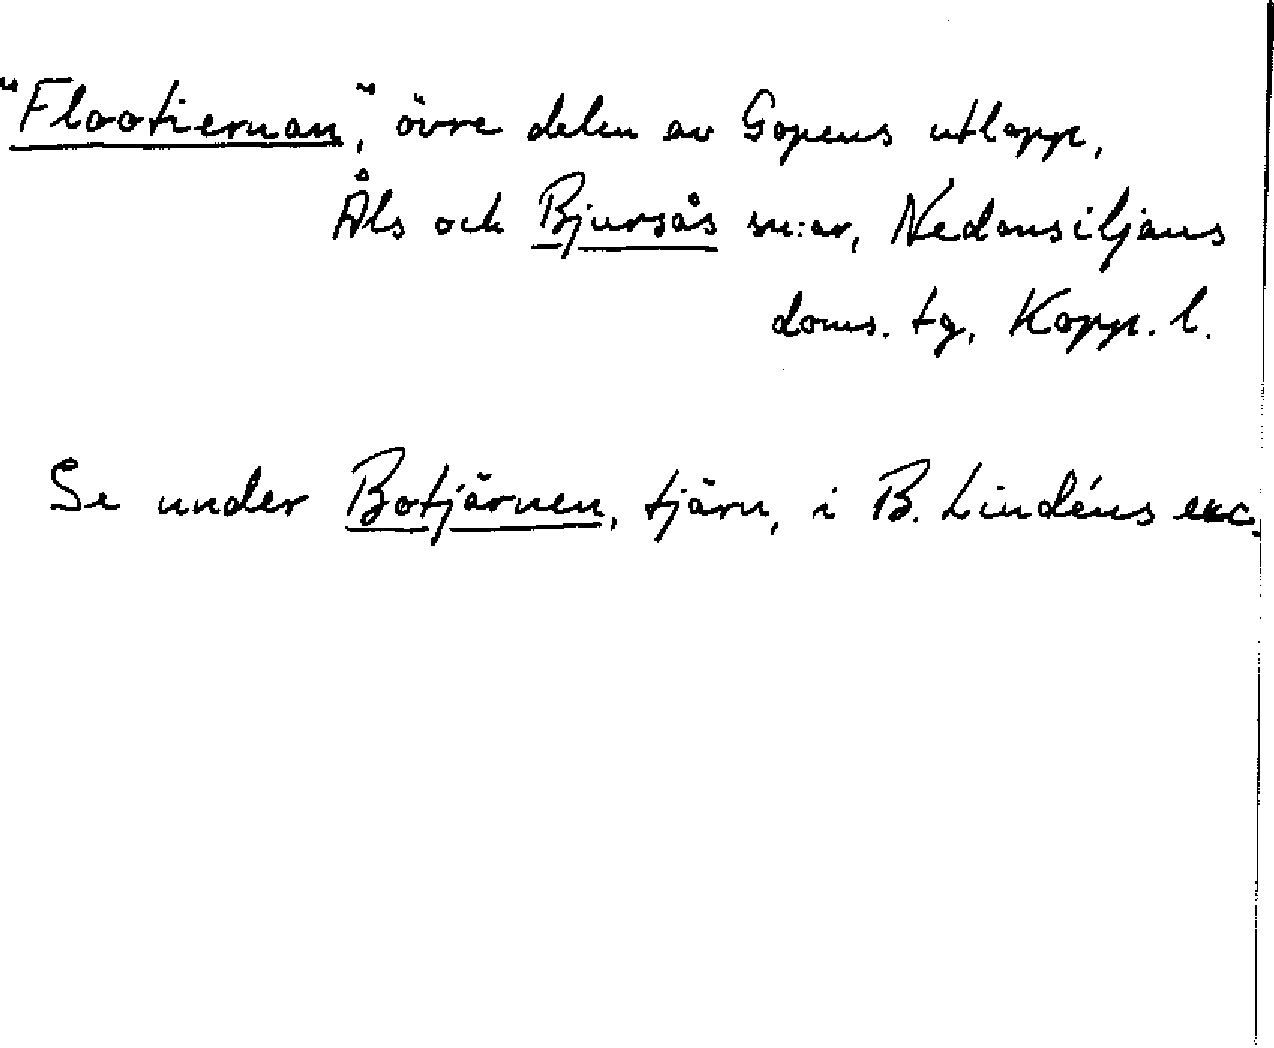 "Flootiernan," övre delen av Gopens utlopp,
Åls och Bjursås sn:ar, Nedansiljans
doms. tg, Kopp. l.
Se under Botjärnen, tjärn, i B. Lindéns exc.